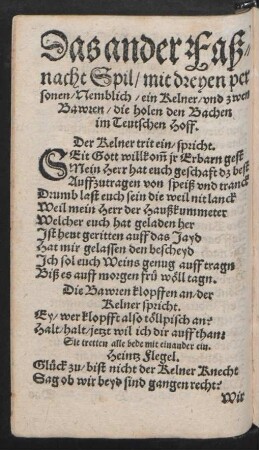 Das ander Faß-
nacht Spil / mit dreyen per
sonen / Nemblich / ein Kelner / vnd zwen
Bawren / die holen den Bachen
im Teutschen Hoff.
Der Kelner trit ein / spricht.
SEit Gott willkom̃ jr Erbarn gest
Mein Herr hat euch geschafft dz best
Auffzutragen von speiß vnd tranck
Drumb last euch sein die weil nit lanck
Weil mein Herr der Haußkummeter
Welcher euch hat geladen her
Ist heut geritten auff das Jayd
Hat mir gelassen den bescheyd
Ich sol euch Weins genug auff tragn
Biß es auff morgen frü wöll tagn.
Die Bawren klopffen an / der
Kelner spricht.
Ey / wer klopfft also töllpisch an?
Halt / halt / jetzt wil ich dir auff than:
Sie tretten alle bede mit einander ein.
Heintz Flegel.
Glück zu / bist nicht der Kelner Knecht
Sag ob wir beyd sind gangen recht?
Wir